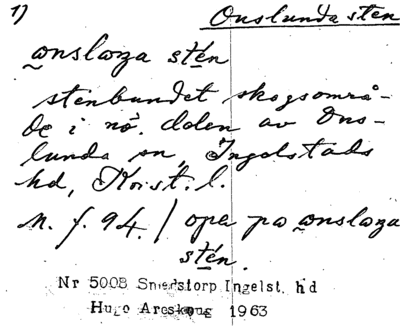 1) Onslunda sten
ωnslωza stén
stenbundet skogsområ-
de i nö. delen av Ons-
lunda sn, Ingelstads
hd, Krist. l.
M. f. 94. / opa po ωnslωza
stén.
Nr 5008 Smedstorp Ingelst. hd
Hugo Areskoug 1963